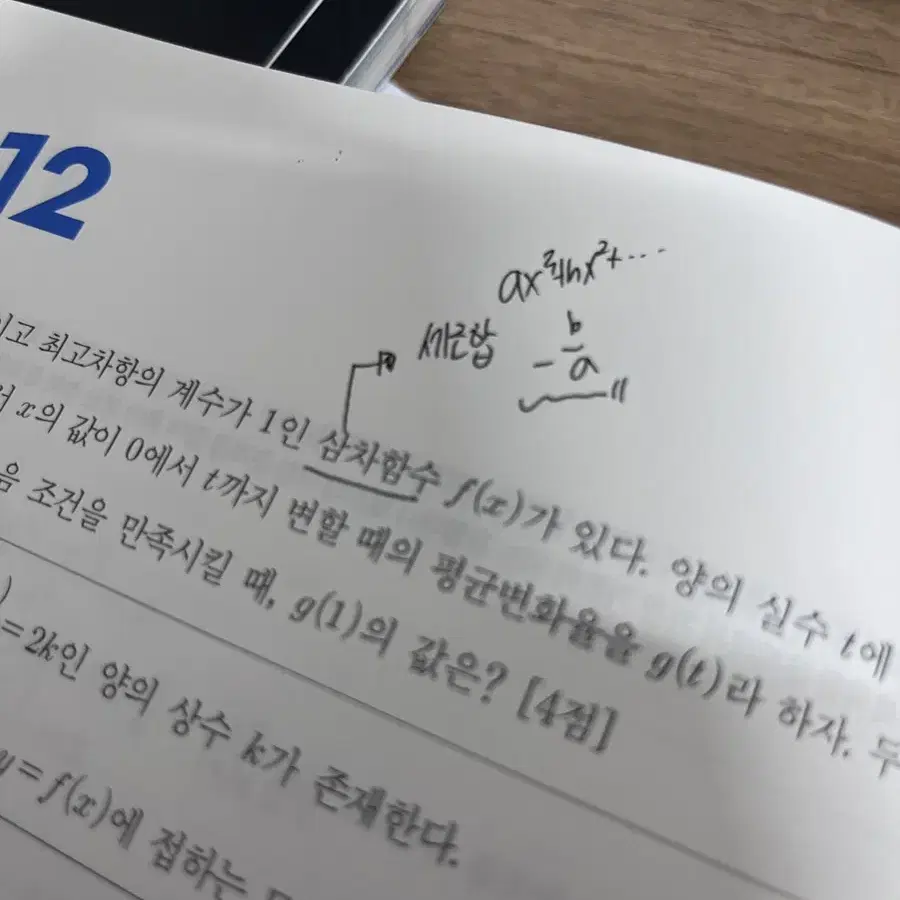 12
ax³+bx²+…
세근합 -b/a
이고 최고차항의 계수가 1인 삼차함수 f(x)가 있다. 양의 실수 t에
서 x의 값이 0에서 t까지 변할 때의 평균변화율을 g(t)라 하자. 두
음 조건을 만족시킬 때, g(1)의 값은? [4점]
)=2k인 양의 상수 k가 존재한다.
y=f(x)에 접하는